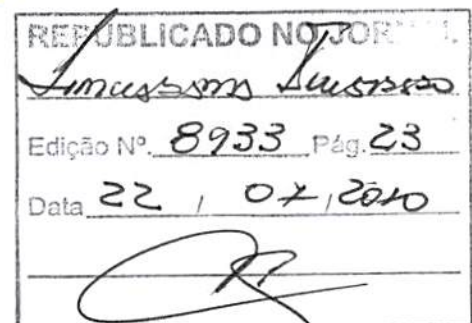 REPUBLICADO NO JOR
Edição Nº. 8933 Pág. 23
Data 22 / 07 / 2010